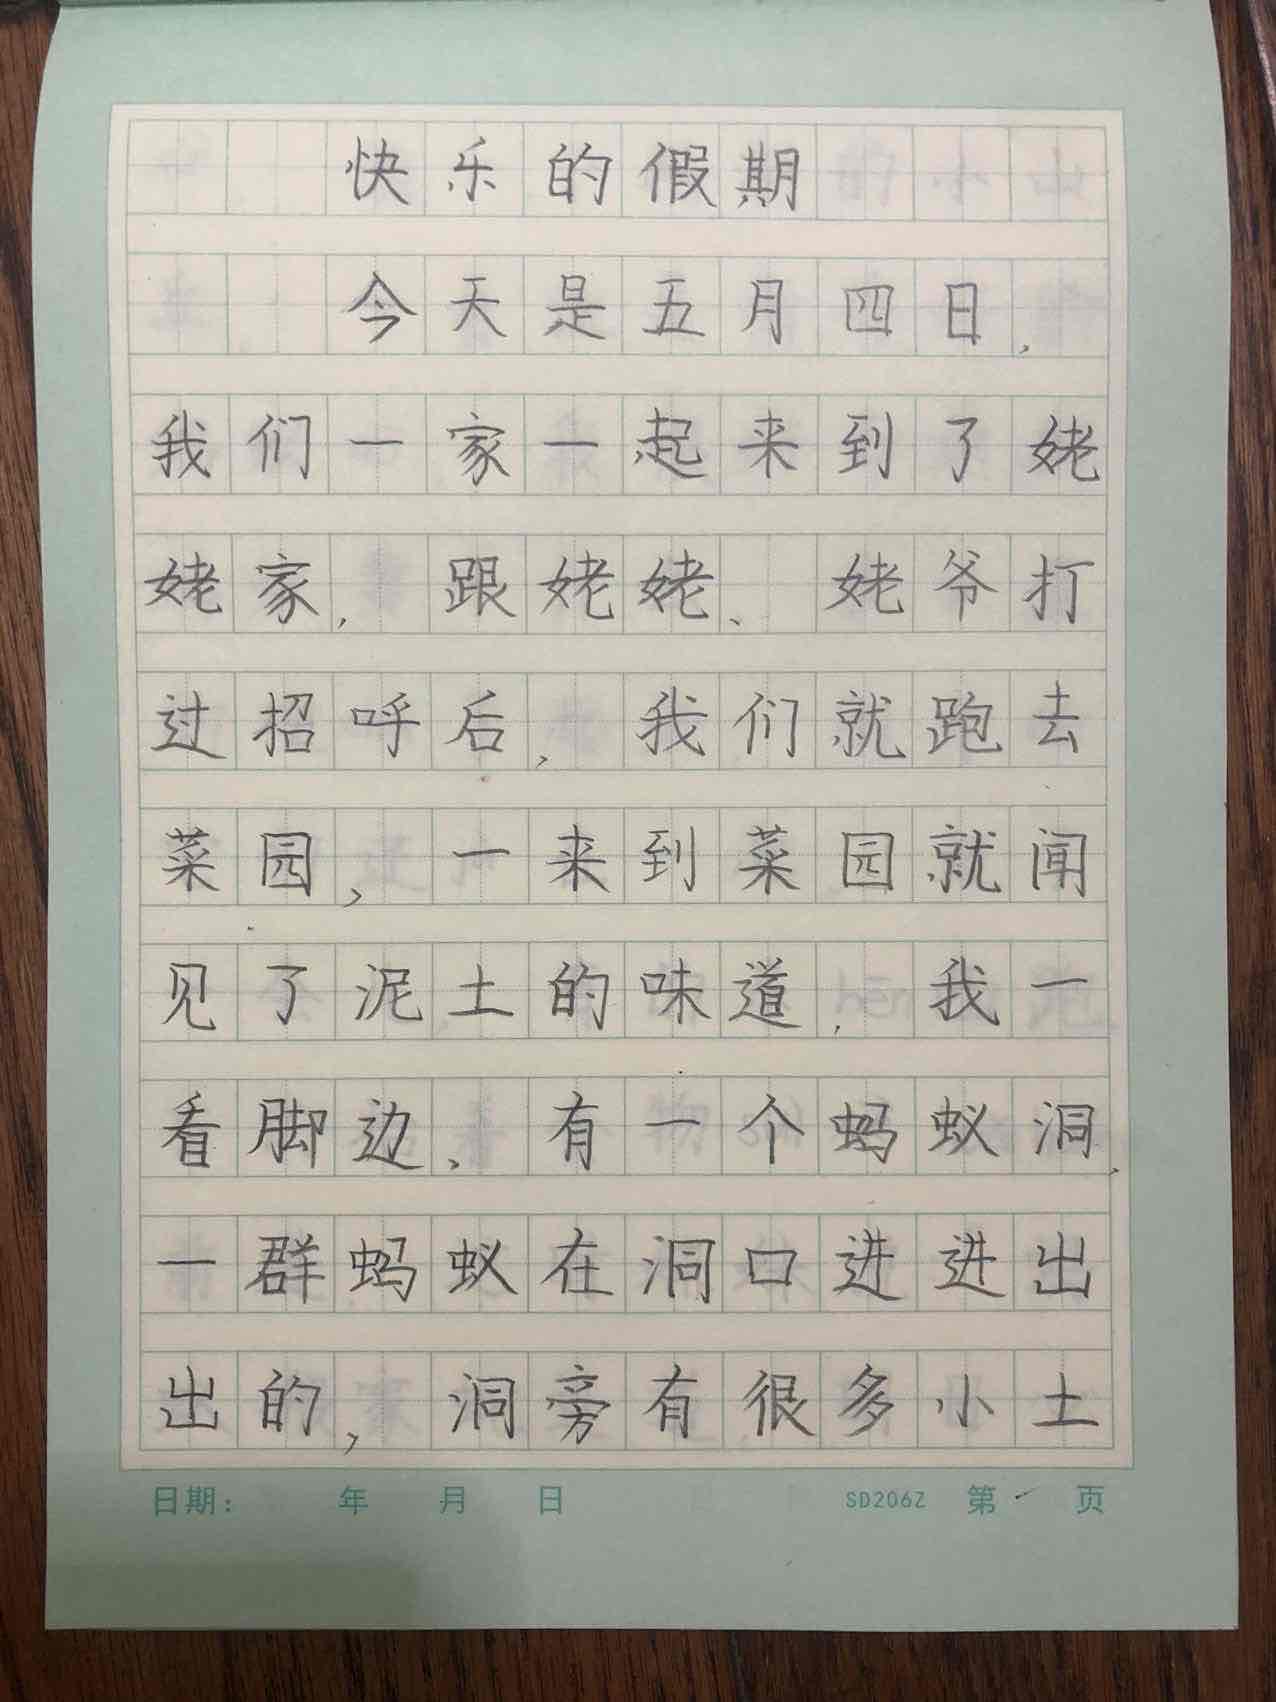 快乐的假期
今天是五月四日，
我们一家一起来到了姥
姥家，跟姥姥、姥爷打
过招呼后，我们就跑去
菜园，一来到菜园就闻
见了泥土的味道，我一
看脚边，有一个蚂蚁洞，
一群蚂蚁在洞口进进出
出的，洞旁有很多小土
日期： 年 月 日 SD206Z 第一页